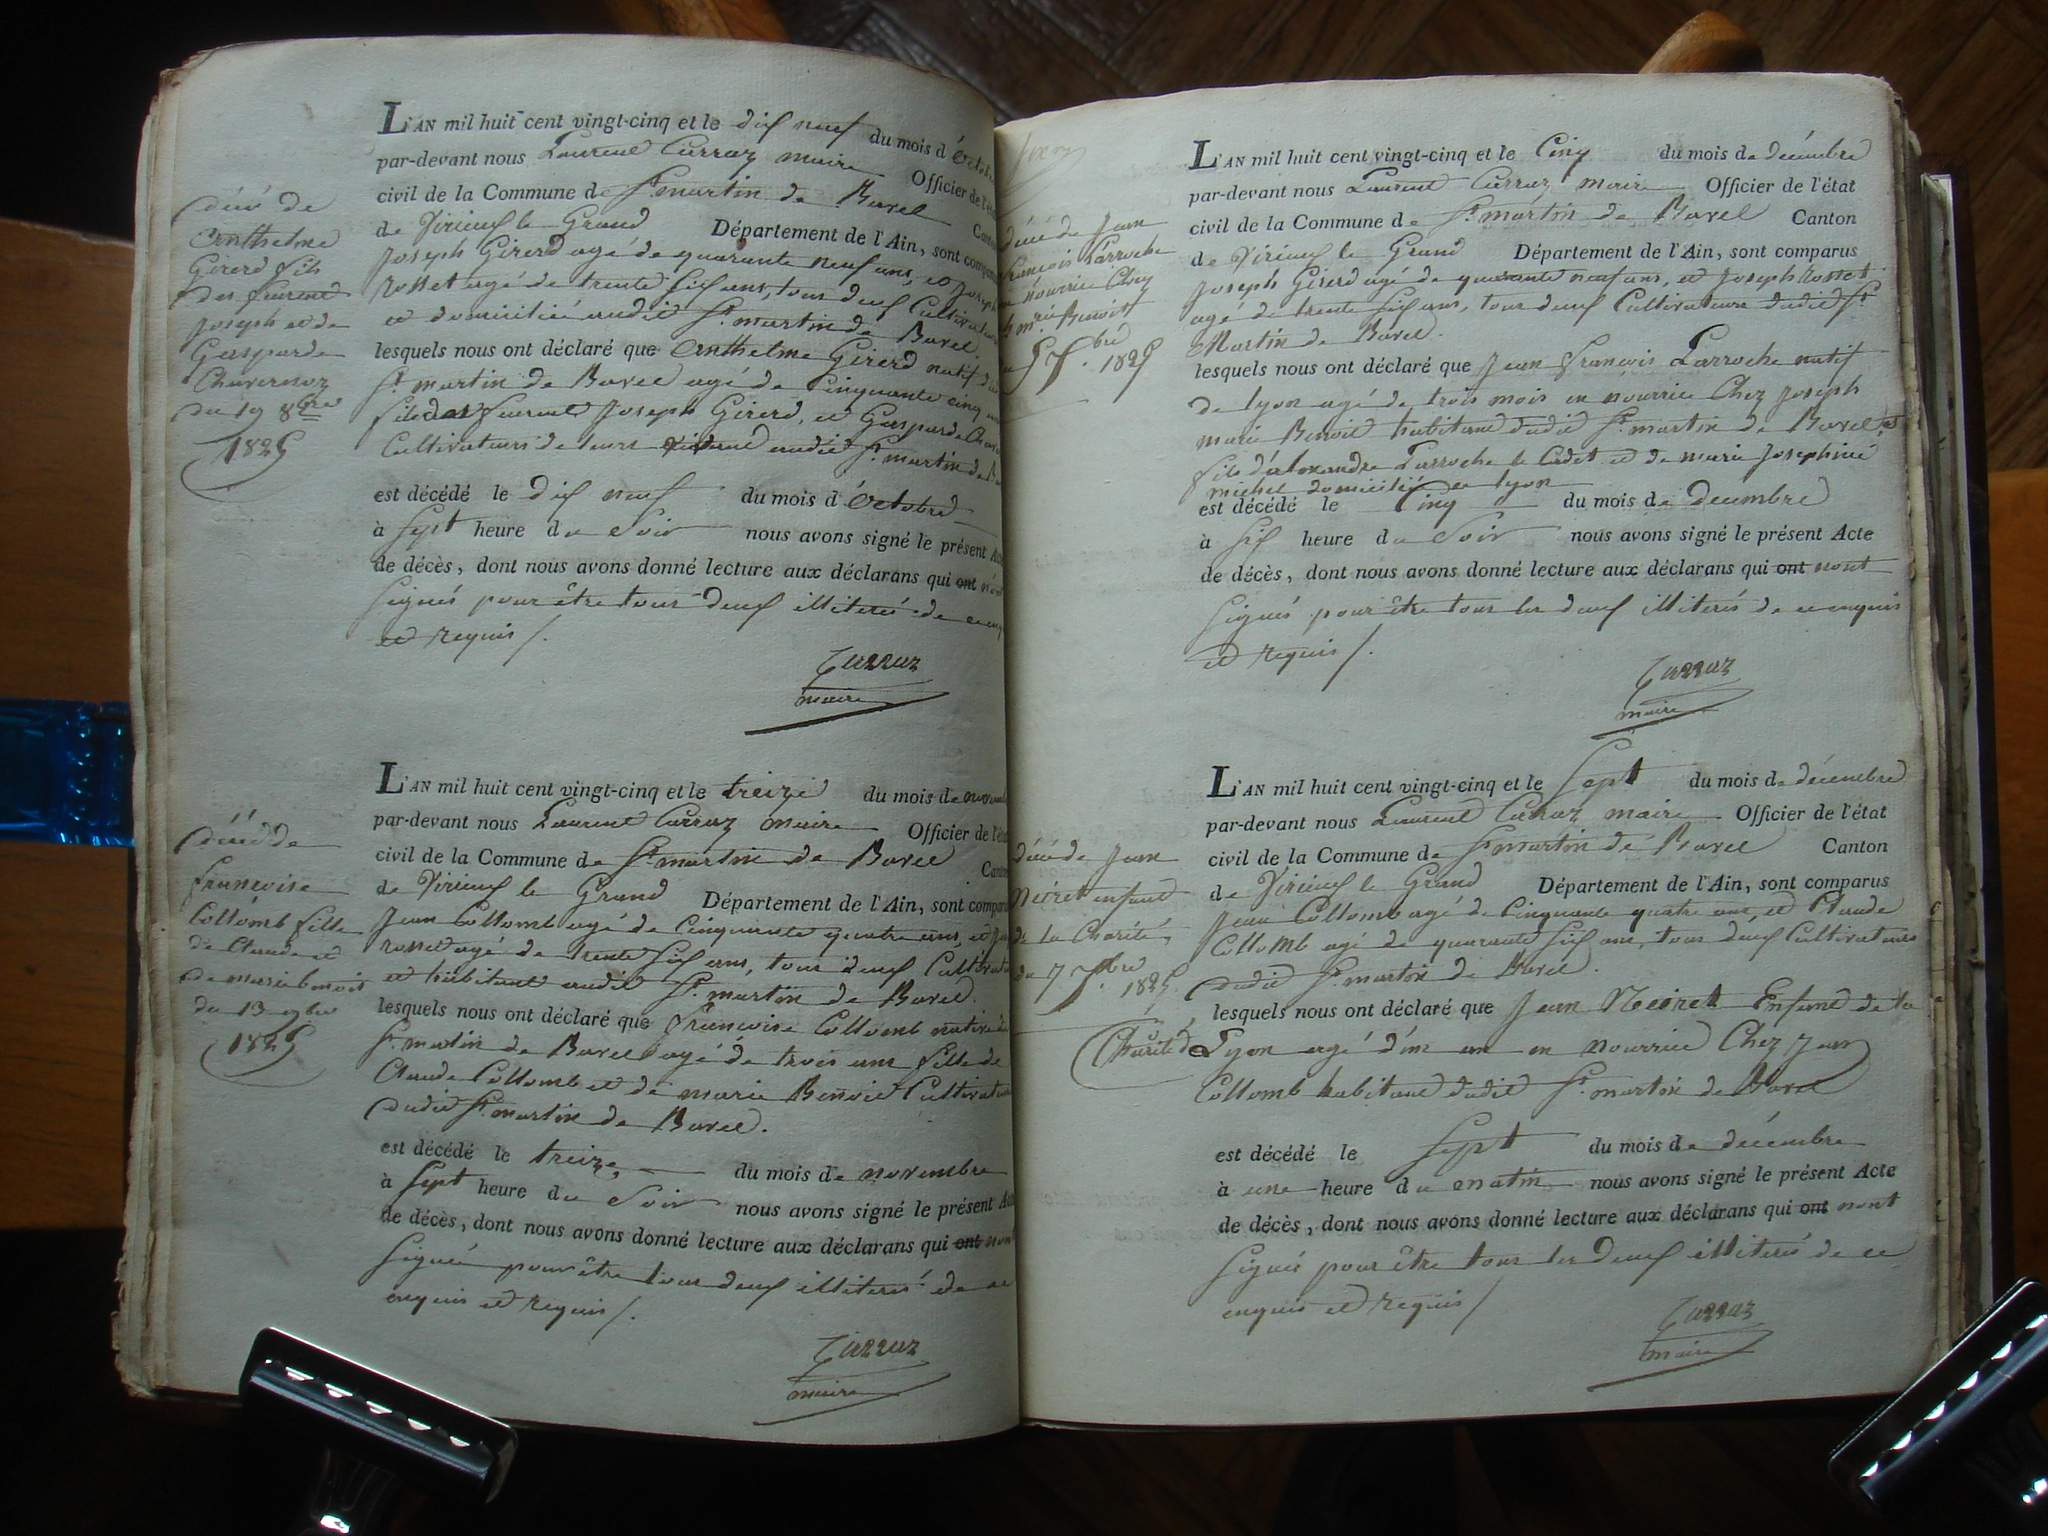 décès de
Anthelme
Girerd fils
des feurent
Joseph et de
Gasparde
Chavernoz
du 19 8bre
1825
L'AN mil huit cent vingt-cinq et le dix neuf du mois d'Octob
par-devant nous Laurent Curraz maire Officier de l'état
civil de la Commune de St martin de Bavel Canton
de Virieux le Grand Département de l'Ain, sont comparus
Joseph Girerd agé de quarante neuf ans, et Joseph
rosset agé de trente six ans, tous deux Cultivateurs
et domiciliés audit St martin de Bavel.
lesquels nous ont déclaré que Anthelme Girerd natif dud
St martin de Bavel agé de cinquante cinq ans
fils des feurent Joseph Girerd, et Gasparde Chav
Cultivateurs de leurs vivant audit St martin de B
est décédé le dix neuf du mois d'Octobre
à Sept heure du Soir nous avons signé le présent Acte
de décès, dont nous avons donné lecture aux déclarans qui ont nont
signés pour être tous deux illiterés de ce enq
et requis /.
Curraz
maire
décès de
francoise
Collomb fille
de Claude et
de marie benoit
du 13 9bre
1825
L'AN mil huit cent vingt-cinq et le treize du mois de novemb
par-devant nous Laurent Curraz maire Officier de l'état
civil de la Commune de St martin de Bavel Canton
de Virieux le Grand Département de l'Ain, sont comparus
Jean Collomb agé de cinquante quatre ans, et J
rosset agé de trente six ans, tous deux Cultivat
et habitant audit St martin de Bavel.
lesquels nous ont déclaré que francoise Collomb native du
St martin de Bavel agé de trois ans fille de
Claude Collomb et de marie Benoit Cultivateurs
dudit St martin de Bavel.
est décédé le treize du mois de novembre
à Sept heure du Soir nous avons signé le présent Acte
de décès, dont nous avons donné lecture aux déclarans qui ont nont
signés pour être tous deux illiterés de ce
enquis et requis /.
Curraz
maire
décès de Jean
françois Larroche
en nourrice Chez
Benoit
1825
L'AN mil huit cent vingt-cinq et le Cinq du mois de décembre
par-devant nous Laurent Curraz maire Officier de l'état
civil de la Commune de St martin de Bavel Canton
de Virieux le Grand Département de l'Ain, sont comparus
Joseph Girerd agé de quarante neuf ans, et Joseph rosset
agé de trente six ans, tous deux Cultivateurs dudit St
Martin de Bavel.
lesquels nous ont déclaré que Jean françois Larroche natif
de lyon agé de trois mois en nourrice Chez Joseph
marie Benoit habitant dudit St martin de Bavel,
fils d'alexandre Larroche le Cadet et de marie Josephine
michel domiciliés a lyon
est décédé le Cinq du mois de décembre
à Six heure du Soir nous avons signé le présent Acte
de décès, dont nous avons donné lecture aux déclarans qui ont nont
signés pour être tous les deux illiterés de ce enquis
et requis /.
Curraz
maire
décès de Jean
Neiret enfant
de la Charité
du 7 Xbre
1825.
Charité
L'AN mil huit cent vingt-cinq et le Sept du mois de décembre
par-devant nous Laurent Curraz maire Officier de l'état
civil de la Commune de St martin de Bavel Canton
de Virieux le Grand Département de l'Ain, sont comparus
Jean Collomb agé de Cinquante quatre ans, et Claude
Collomb agé de quarante six ans, tous deux Cultivateurs
dudit St martin de Bavel.
lesquels nous ont déclaré que Jean Neiret Enfant de la
Charité de Lyon agé d'un an en nourrice Chez Jean
Collomb habitant dudit St martin de Bavel
est décédé le Sept du mois de décembre
à une heure du matin nous avons signé le présent Acte
de décès, dont nous avons donné lecture aux déclarans qui ont nont
signés pour être tous les deux illiterés de ce
enquis et requis /
Curraz
maire